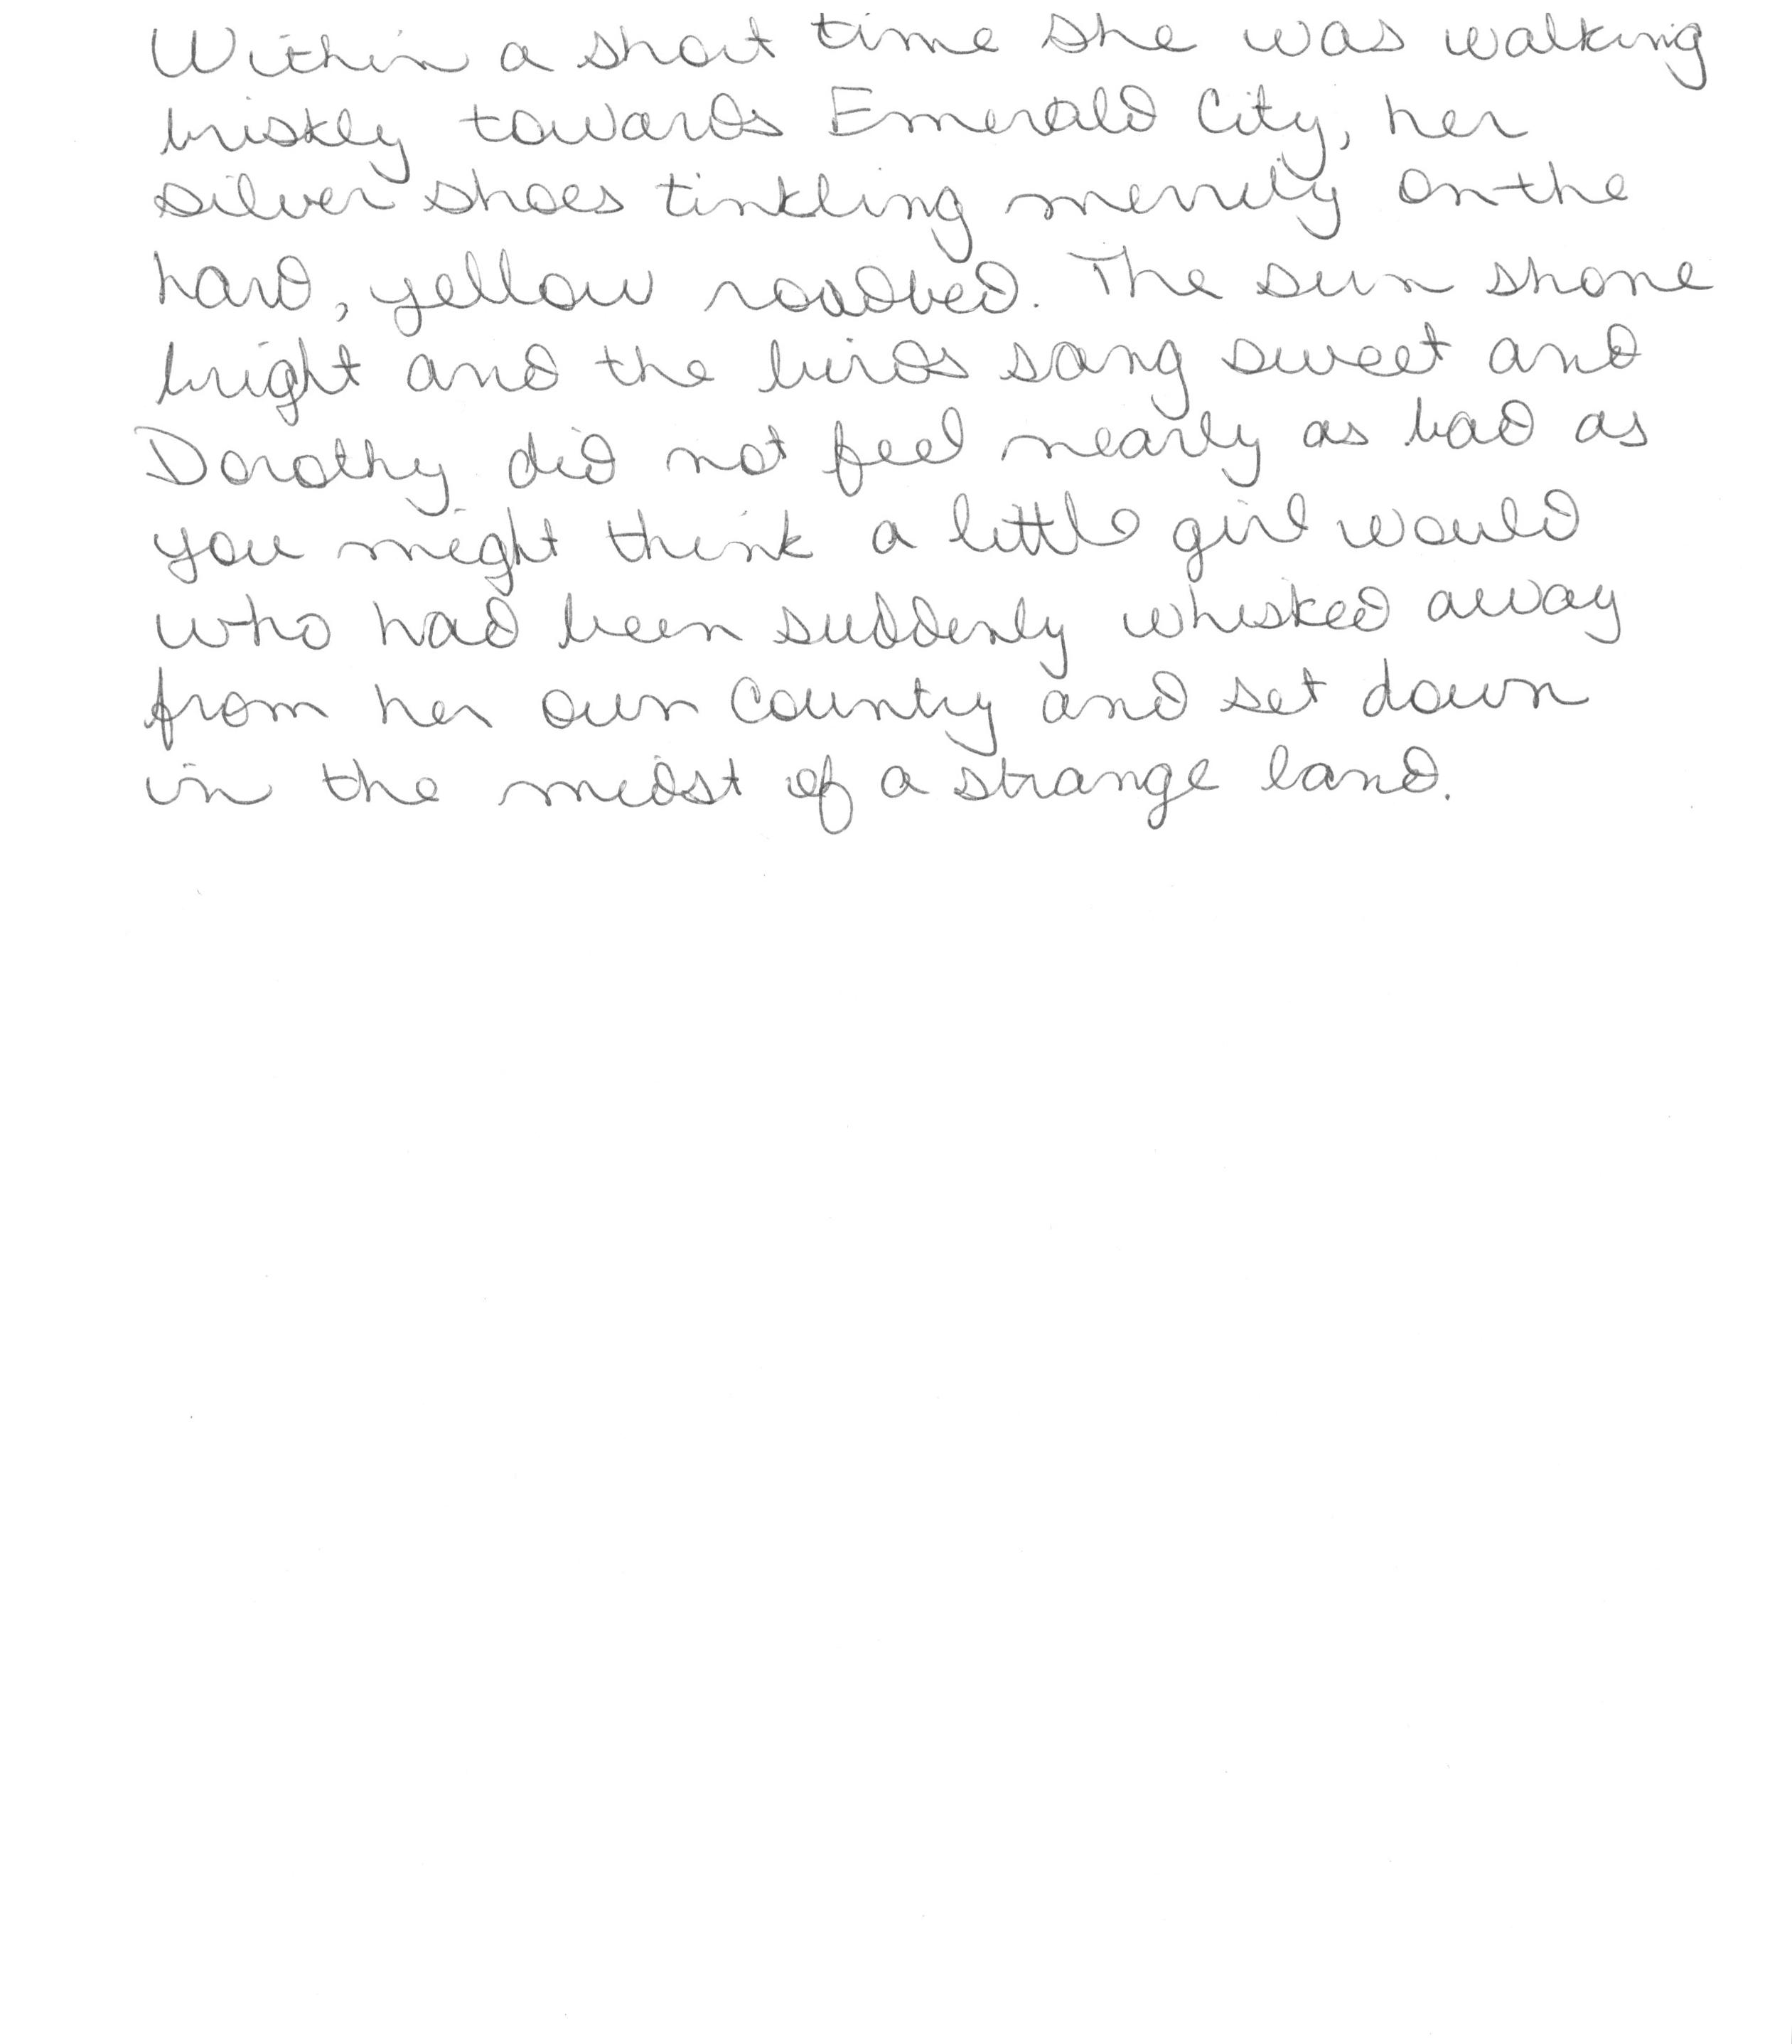 Within a short time she was walking
briskly towards Emerald City, her
silver shoes tinkling merrily on the
hard, yellow roadbed. The sun shone
bright and the birds sang sweet and
Dorothy did not feel nearly as bad as
you might think a little girl would
who had been suddenly whisked away
from her own country and set down
in the midst of a strange land.